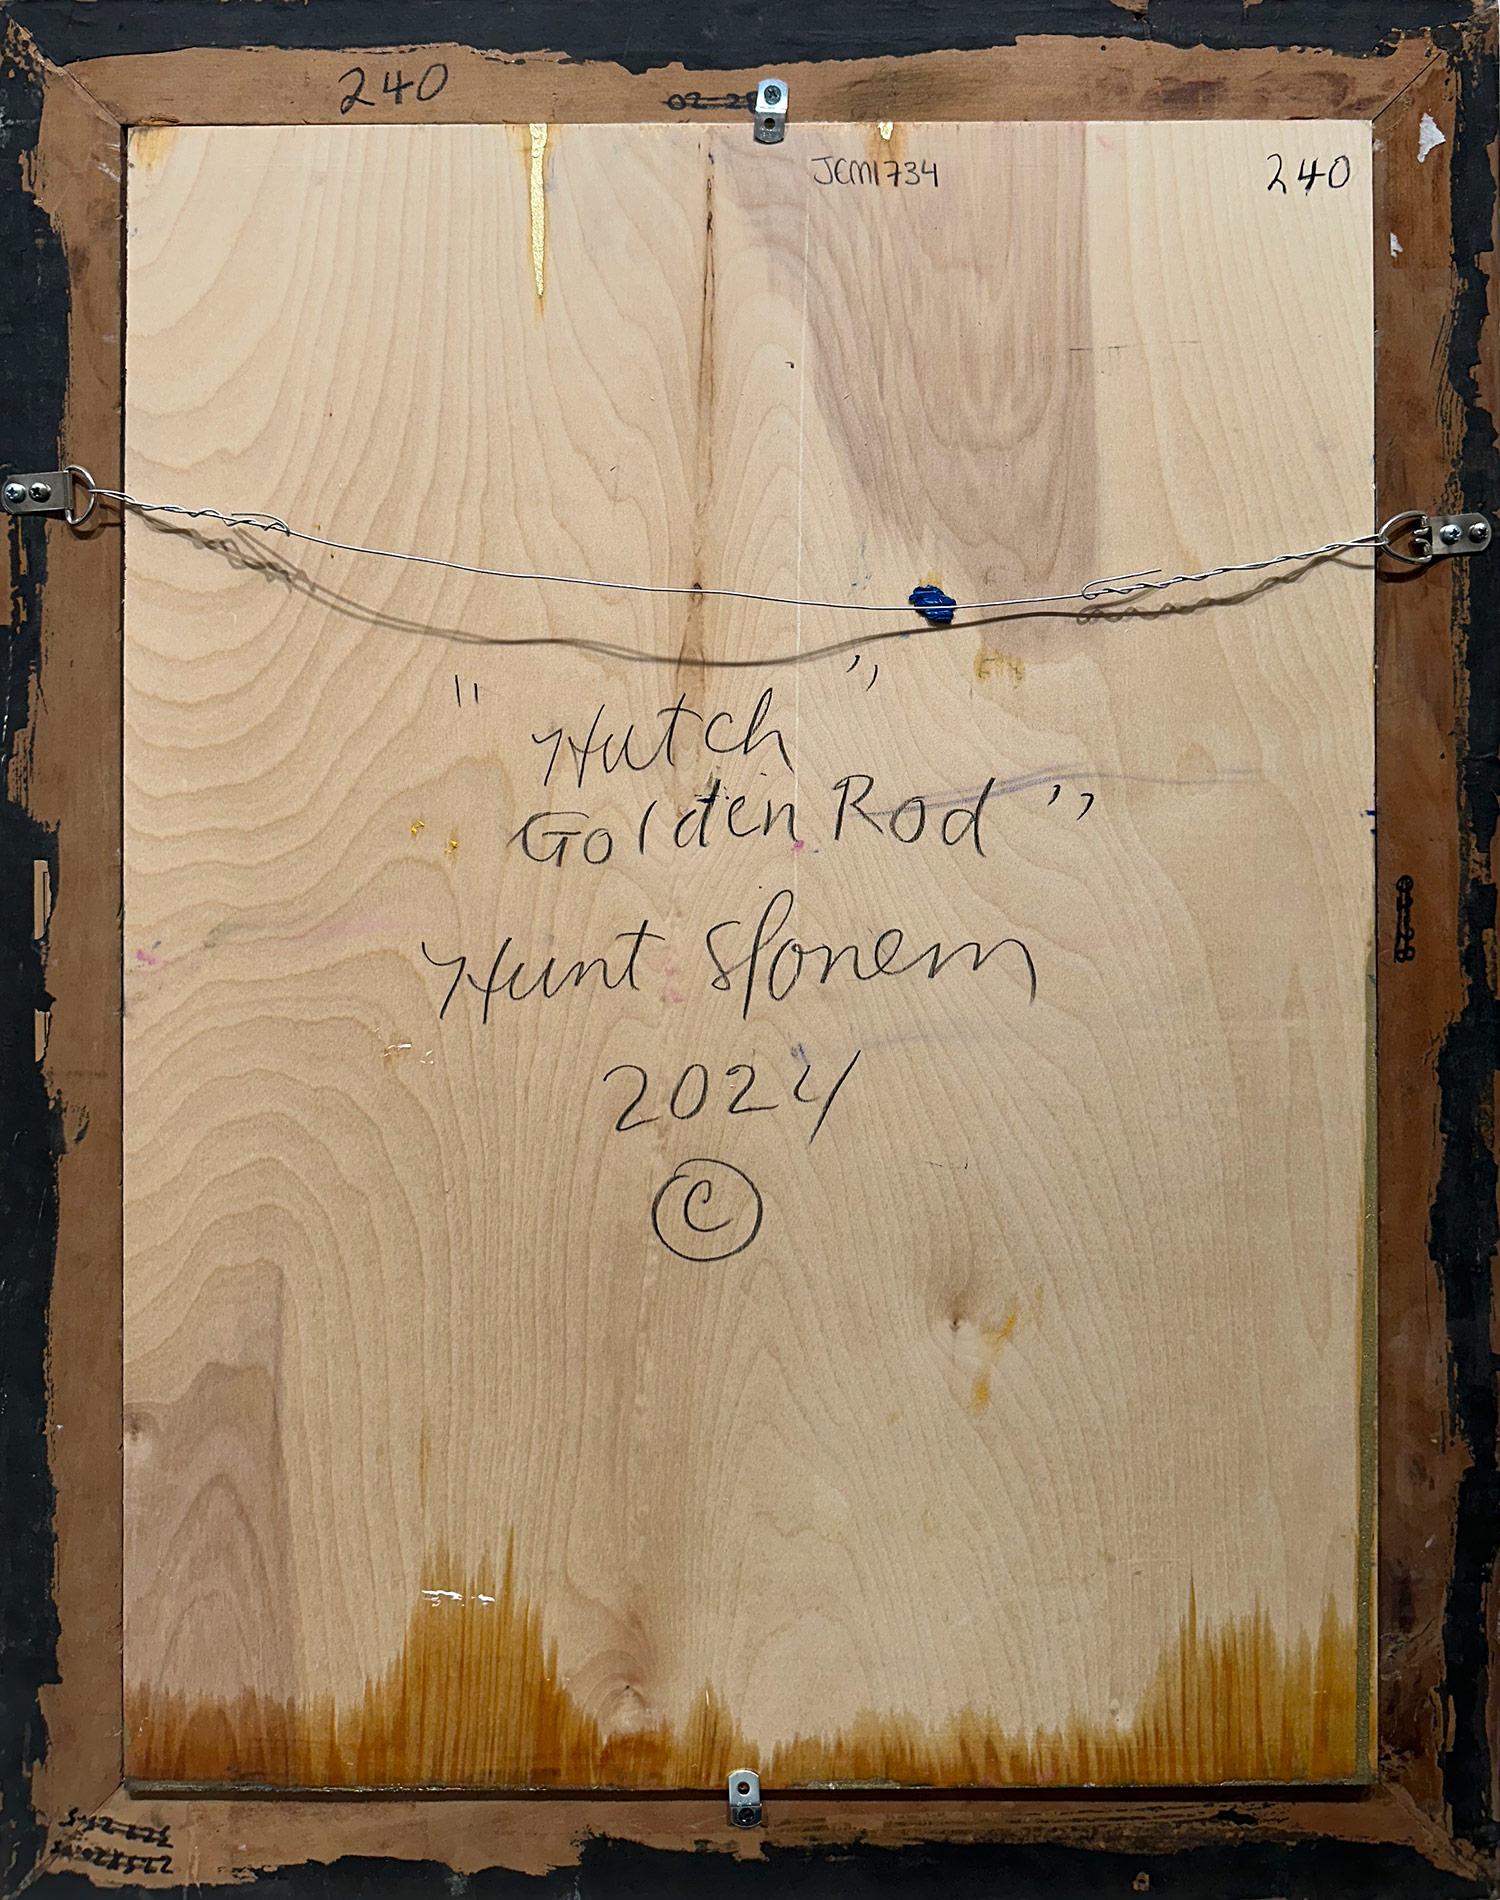 240
JEM1734
240
" Hutch "
Golden Rod "
Hunt Slonem
2024
©